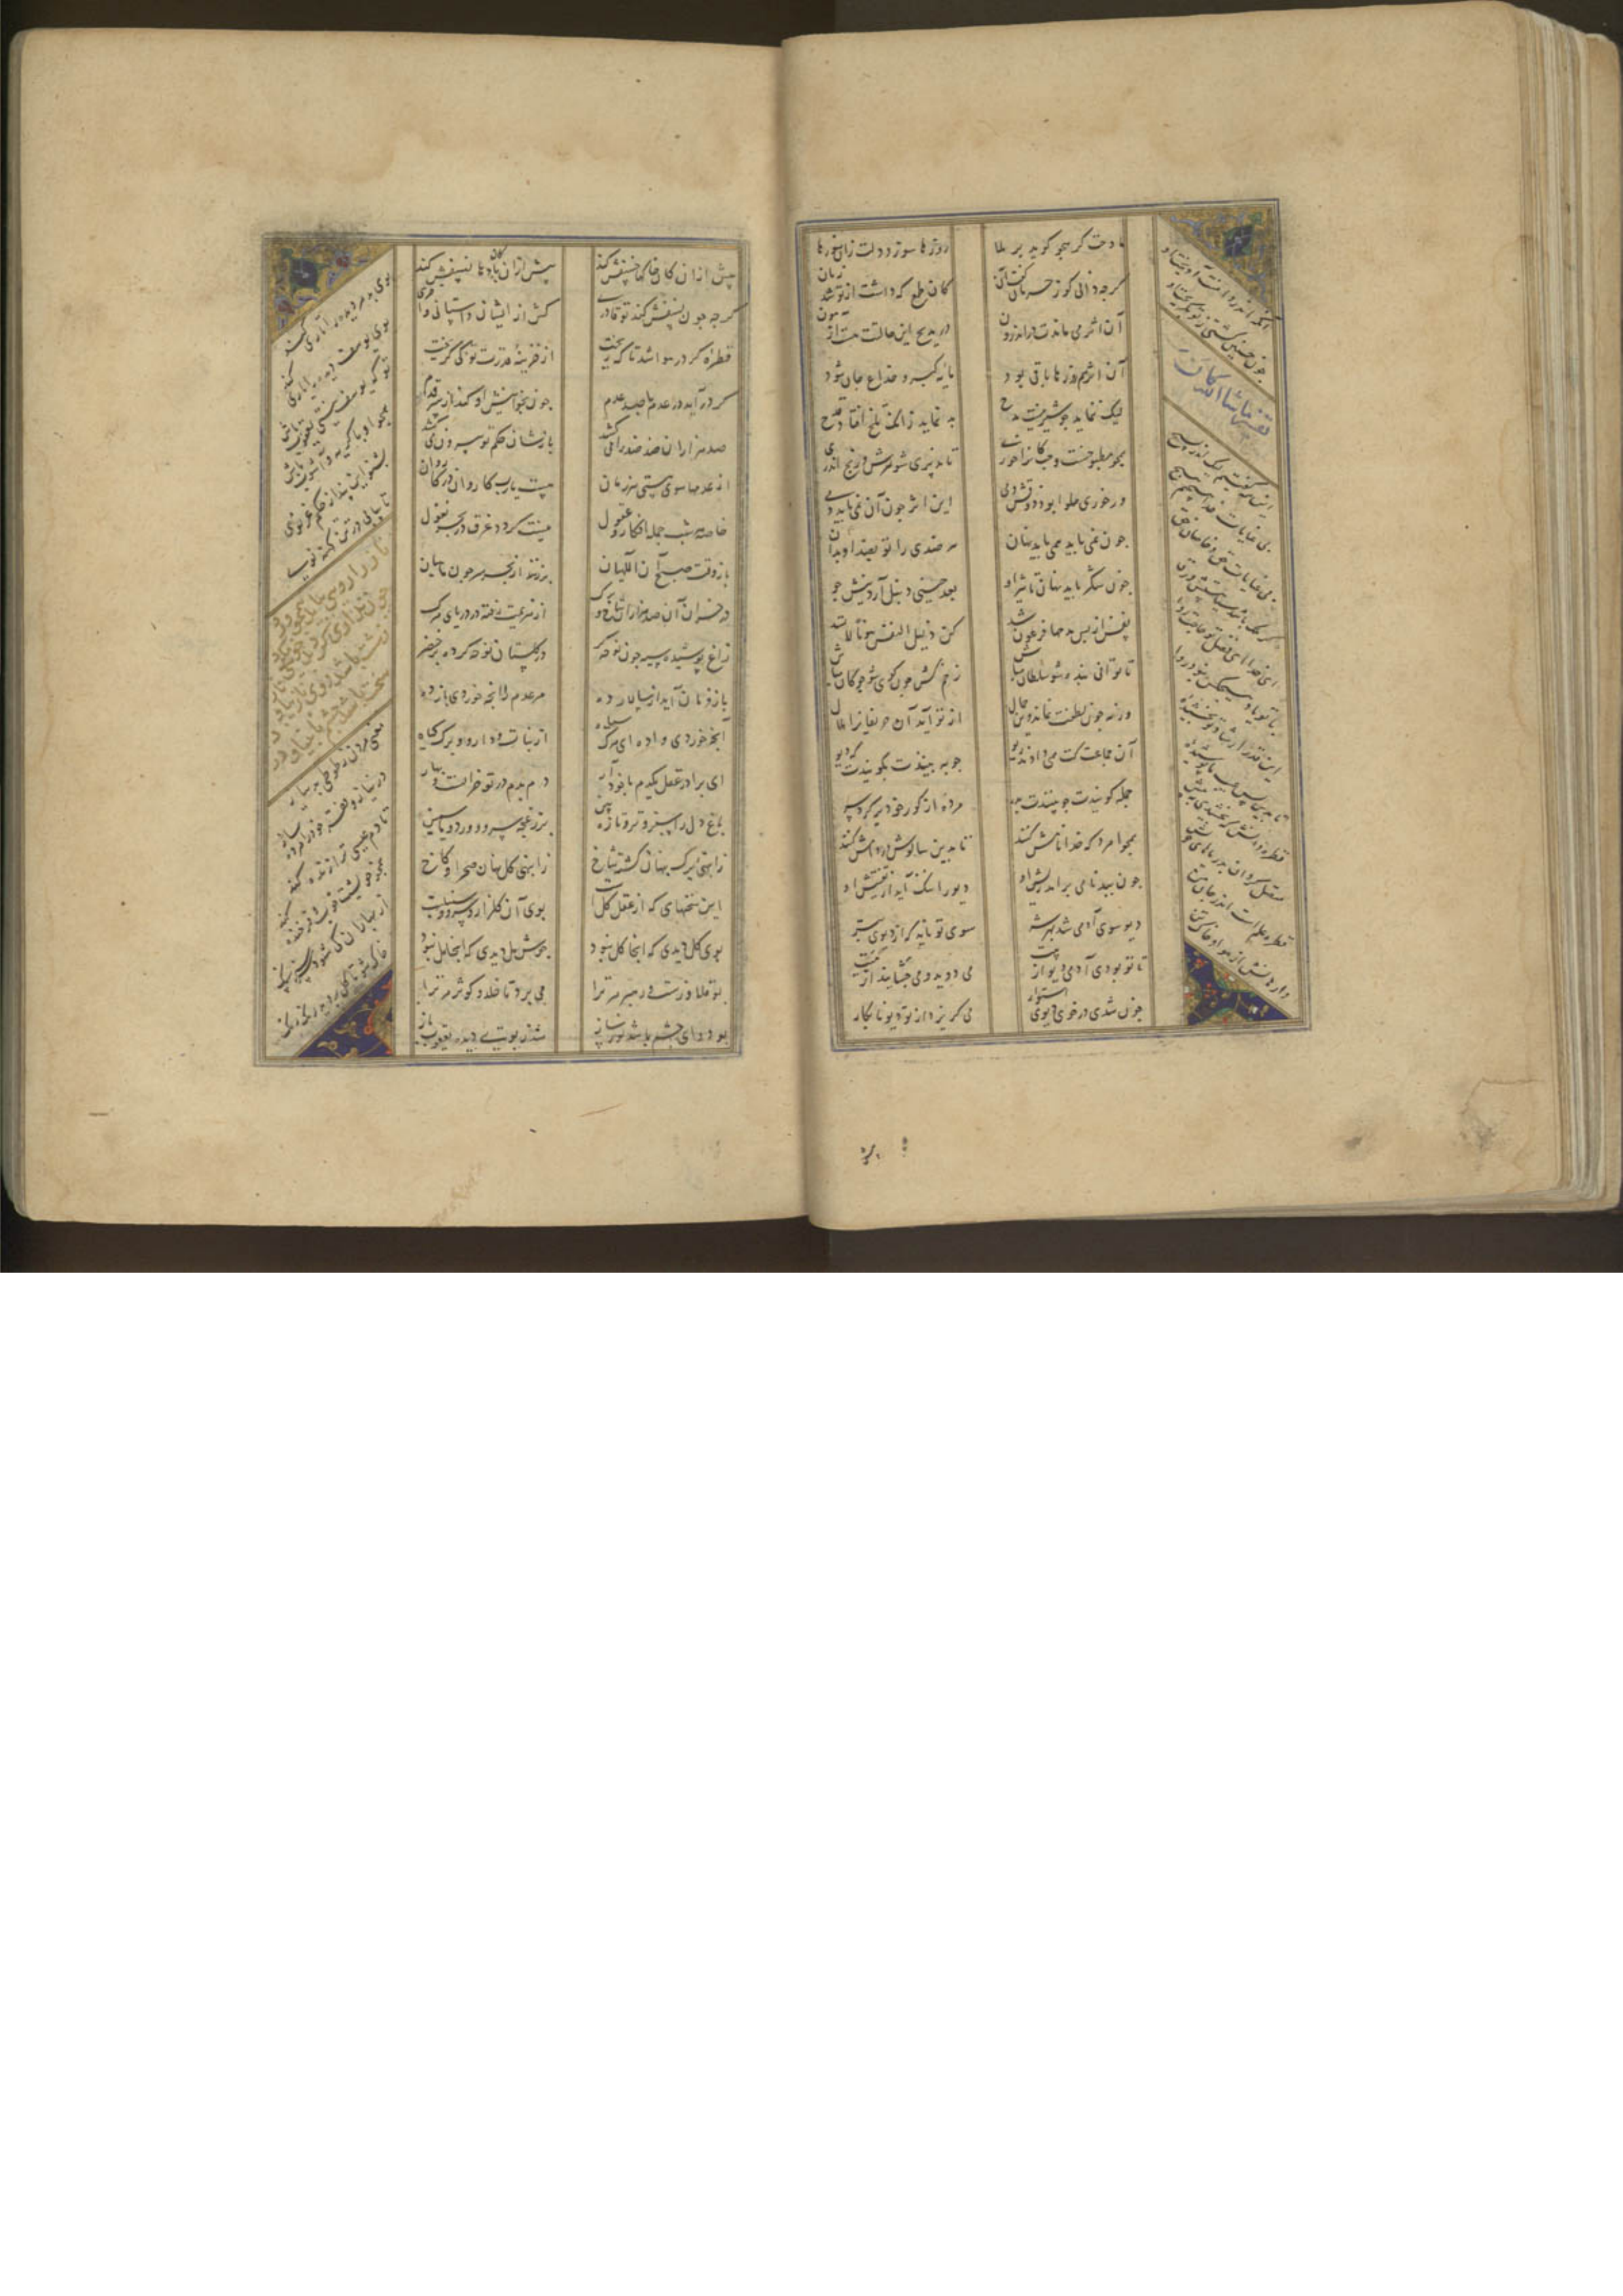 مادحت کر هجو کوید بر ملا روزها سوزد دلت زان سوزها
کرچه دانی کو ز حرمان کفت آن کان طمع که داشت از تو شد زیان
آن اثر می ماندت در اندرون در مدیح این حالتت هست آزمون
آن اثر هم روزها باقی بود مایه کبر و خداع جان شود
لیک ننماید چو شیرینست مدح بد نماید زانک تلخ افتاد قدح
همچو مطبوخست و حب کانرا خوری تا بدیری شورش و رنج اندری
ور خوری حلوا بود ذوقش دمی این اثر چون آن نمی پاید دمی
چون نمی پاید همی پاید نهان هر ضدی را تو بضد او بدان
چون شکر پاید نهان تاثیر او بعد حینی دنبل آرد نیش جو
نفس از بس مدحها فرعون شد کن ذلیل النفس هونا لا تسد
تا توانی بنده شو سلطان مباش زخم کش چون کوی شو چوکان مباش
ورنه چون لطفت نماند وین جمال از تو آید آن حریفانرا ملال
آن جماعت کت همی دادند ریو چون به بینندت بکویندت که دیو
جمله کویندت چو بینندت بدر مرده از کور خود بر کرد سر
همچو امرد که خدا نامش کنند تا بدین سالوس در دامش کنند
چون ببدنامی برآمد ریش او دیو را ننک آید از تفتیش او
دیو سوی آدمی شد بهر شر سوی تو ناید که از دیوی بتر
تا تو بودی آدمی دیو از پیت می دوید و می چشانید از میت
چون شدی در خوی دیوی استوار می کریزد از تو دیو نابکار
آنک اندر دامنت آویخت او
چون چنین کشتی ز تو بکریخت او
تفسیر ماشاء الله کان
این همه کفتیم لیک اندر بسیج
بی عنایات خدا هیچیم هیچ
بی عنایات حق و خاصان حق
کر ملک باشد سیاهستش ورق
ای خدا ای فضل تو حاجت روا
با تو یاد هیچ کس نبود روا
این قدر ارشاد تو بخشیده
تا بدین بس عیب ما پوشیده
قطره دانش که بخشیدی ز پیش
متصل کردان بدریاهای خویش
قطره علم است اندر جان من
وارهانش از هوا وز خاک تن
پیش از ان کاین خاکها خسفش کنند پیش از ان کاین بادها نسفش کنند
کرچه چون نسفش کند تو قادری کش از ایشان واستانی واخری
قطره کو در هوا شد تا که ریخت از خزینه قدرت تو کی کریخت
کر درآید در عدم یا صد عدم چون بخوانیش او کند از سر قدم
صد هزاران ضد ضد را می کشد بازشان حکم تو بیرون می کشد
از عدمها سوی هستی هر زمان هست یارب کاروان در کاروان
خاصه هر شب جمله افکار و عقول نیست کردد غرق در بحر نغول
باز وقت صبح آن اللهیان برزنند از بحر سر چون ماهیان
در خزان آن صد هزاران شاخ و برک از هزیمت رفته در دریای مرک
زاغ پوشیده سیه چون نوحه کر در کلستان نوحه کرده بر خضر
باز فرمان آید از سالار ده مر عدم را کانچه خوردی باز ده
آنچه خوردی واده ای مرک سیاه از نبات و دارو و برک و کیاه
ای برادر عقل یکدم با خود آر دم بدم در تو خزانست و بهار
باغ دل را سبز و تر و تازه بین پر ز غنچه سرو و ورد و یاسمین
ز انبهی برک پنهان کشته شاخ ز انبهی کل نهان صحرا و کاخ
این سخنهایی که از عقل کلست بوی آن کلزار و سرو و سنبلست
بوی کل دیدی که آنجا کل نبود جوش مل دیدی که آنجا مل نبود
بو قلاوزست و رهبر مر ترا می برد تا خلد و کوثر مر ترا
بو دوای چشم باشد نور ساز شد ز بویی دیده یعقوب باز
بوی بد مر دیده را تاری کند
بوی یوسف دیده را یاری کند
تو که یوسف نیستی یعقوب باش
همچو او با کریه و آشوب باش
بشنو این پند از حکیم غزنوی
تا بیابی در تن کهنه نوی
ناز را رویی بباید همچو ورد
چون نداری کرد بدخویی مکرد
زشت باشد روی نازیبا و ناز
سخت باشد چشم نابینا و درد
معنی مردن ز طوطی بد نیاز
در نیاز و فقر خود را مرده ساز
تا دم عیسی ترا زنده کند
همچو خویشت خوب و فرخنده کند
از بهاران کی شود سرسبز سنک
خاک شو تا کل بروید رنک رنک